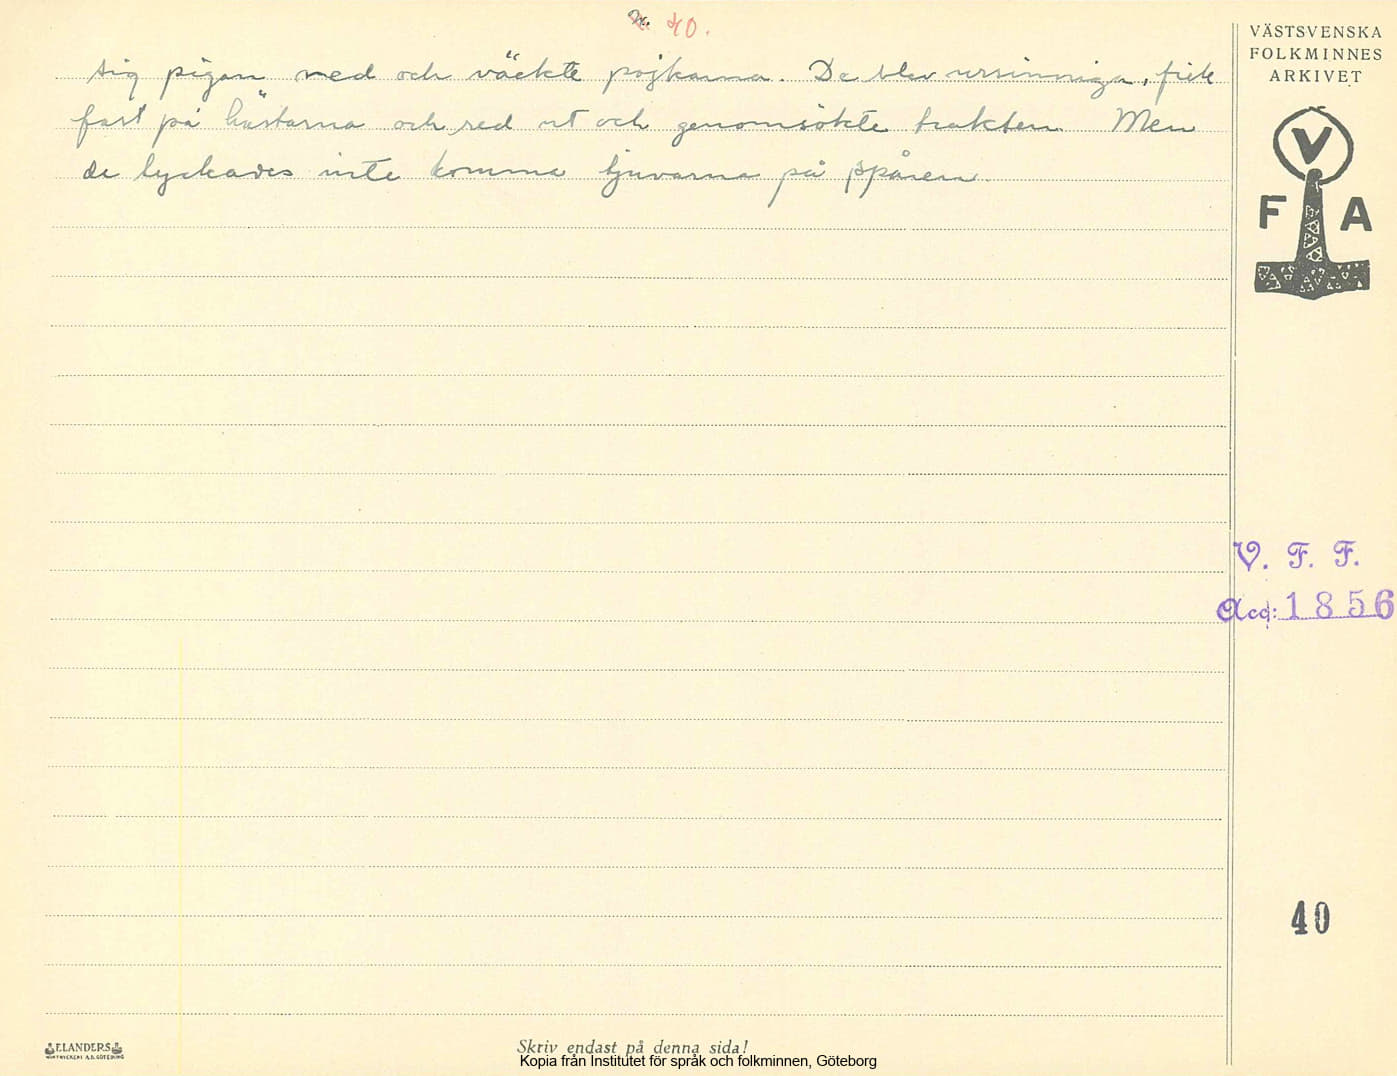 40.
sig pigan ned och väckte pojkarna. De blev ursinniga, fick
fast på hästarna och red ut och genomsökte trakten. Men
de lyckades inte komma tjuvarna på spåren.
VÄSTSVENSKA
FOLKMINNES
ARKIVET
V
F A
V. F. F.
Acc: 1856
40
ELANDERS
BOKTRYCKERI A.B. GÖTEBORG
Skriv endast på denna sida!
Kopia från Institutet för språk och folkminnen, Göteborg